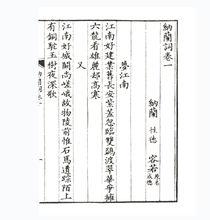 納蘭詞卷一
納蘭 性德 容若 原名成德
夢江南
江南好建業舊長安紫蓋忽臨雙鷁渡翠華爭擁
六龍看雄麗卻高寒
又
江南好城闕尚嵯峨故物陵前惟石馬遺蹤陌上
有銅駝玉樹夜深歌